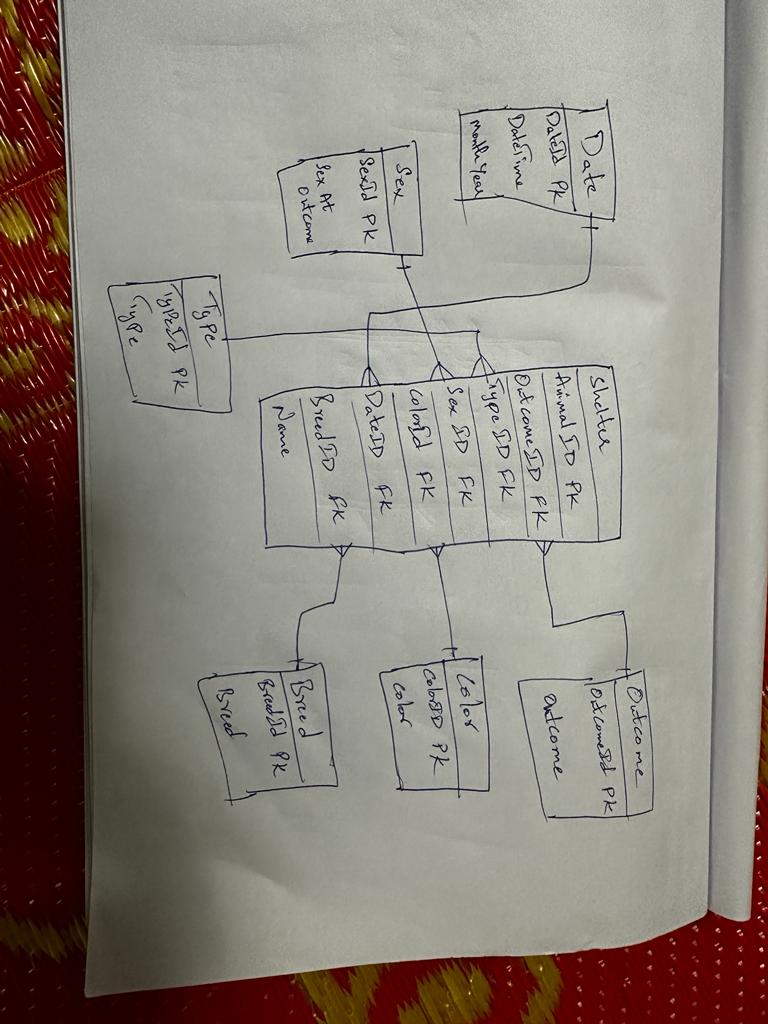 Date
DateId PK
DateTime
Month Year
Sex
SexId PK
Sex At
Outcome
Type
TypeId PK
Type
Shelter
AnimalID PK
OutcomeID FK
Type ID FK
Sex ID FK
ColorId FK
DateID FK
BreedID FK
Name
Outcome
OutcomeId PK
Outcome
Color
ColorID PK
Color
Breed
BreedId PK
Breed